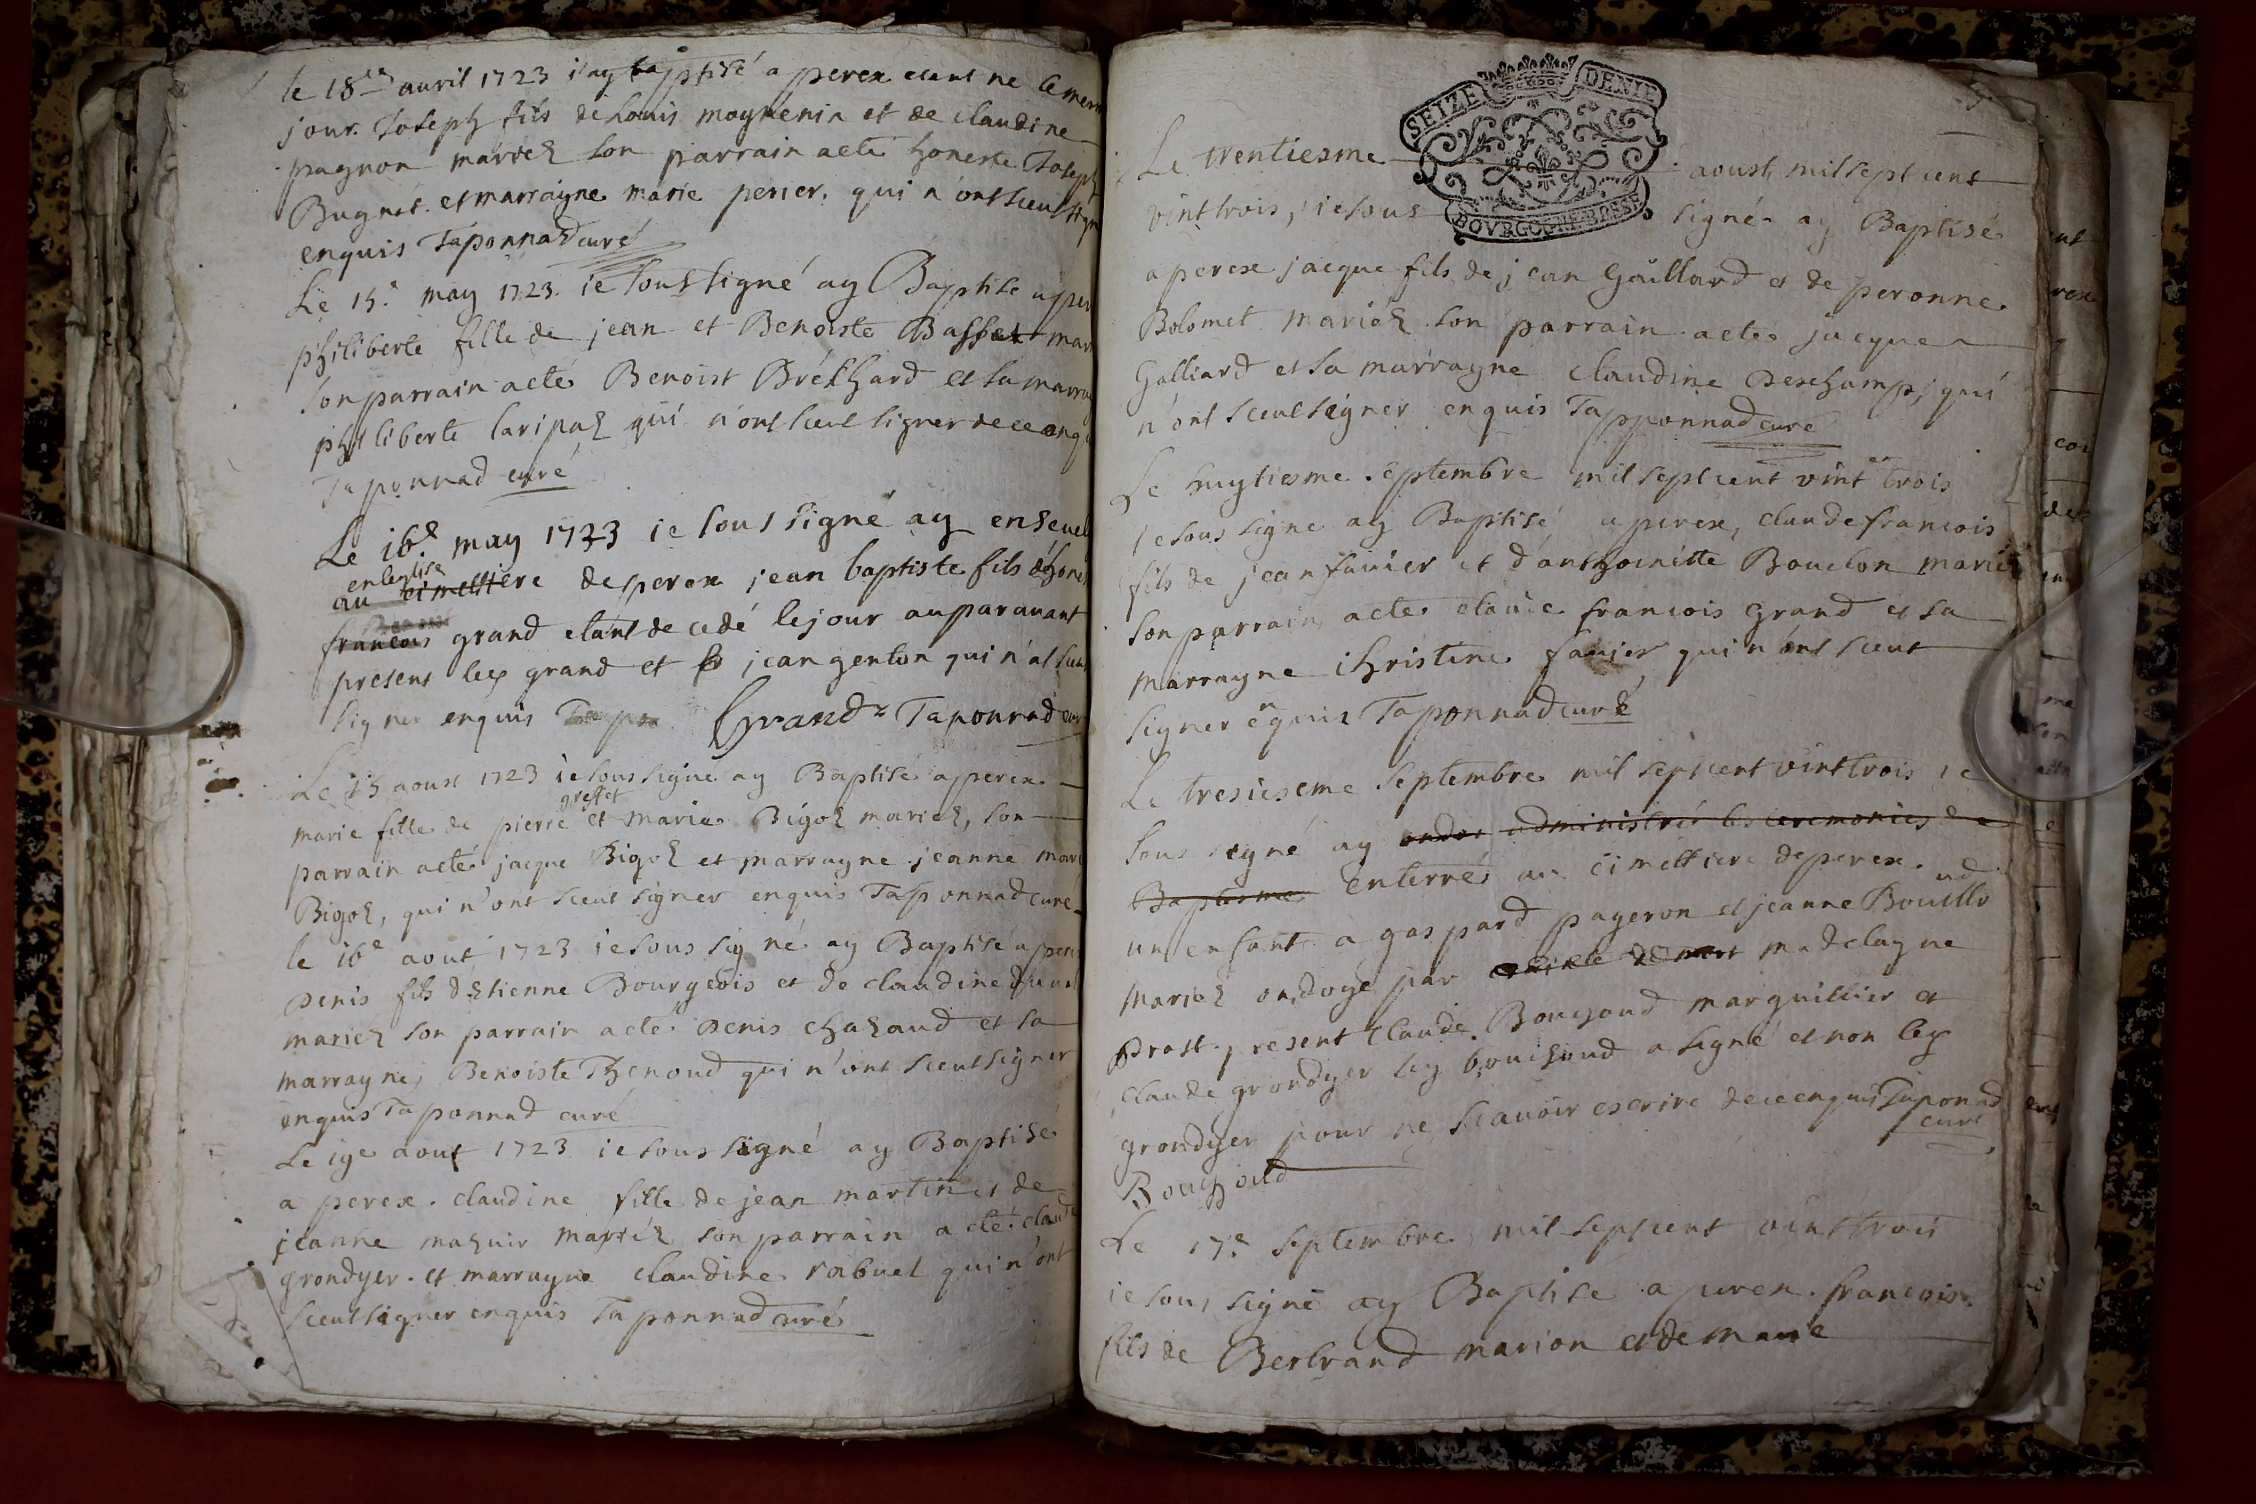 le 18e auril 1723 i'ay baptisé a perex estant ne le mem
jour. Joseph fils de Louis moynenin et de claudine
pagnon mariez son parrain a eté honeste Joseph
Bugnet et marrayne marie perier, qui n'ont sceut sign
enquis Taponnad curé
Le 15e may 1723 ie soussigné ay Baptisé a per
philiberte fille de jean et Benoiste Basset mar
son parrain a eté Benoist Brékhard et sa marra
philiberte laripaz qui n'ont sceut signer de ce enq
Taponnad curé
Le 16e may 1723 ie soussigné ay enseuel
en leglise
au cimettiere de perex jean baptiste fils d'hones
francois grand etant decedé le jour auparauant
present les grand et jean genton qui n'at sceu
signer enquis Grand Taponnad cur
Le 15 aoust 1723 ie soussigné ay Baptisé a perex
greffet
marie fille de pierre et marie Bigoz mariez, son
parrain a eté jacque Bigoz et marrayne jeanne mari
Bigoz, qui n'ont sceut signer enquis Taponnad curé
le 16e aout 1723 ie soussigné ay Baptisé a perex
Denis fils d'Etienne Bourgeois et de claudine
mariez son parrain a eté Denis chazaud et sa
marrayne Benoiste Thenoud qui n'ont sceut signer
enquis Taponnad curé
Le 19e aout 1723 ie soussigné ay Baptisé
a perex. claudine fille de jean martin et de
jeanne mazuir mariéz son parrain a eté claud
grondyer. et marrayne claudine rabuel qui n'ont
sceut signer enquis Taponnad curé
SEIZE DENIE
BOVRGOGNE BRESSE
Le trentiesme aoust mil sept cent
vint trois, ie sous signé ay Baptisé
a perex jacque fils de jean Gaillard et de peronne
Bolomet mariez son parrain a eté jacque
Galliard et sa marrayne claudine Deschamps, qui
n'ont sceut signer enquis Tapponnad curé
Le huytiesme septembre mil sept cent vint et trois
ie sous signe ay Baptisé a perex, claude francois
fils de jean fauier et d'anthoinette Bouclon marié
son parrain a eté claude francois grand et sa
marrayne christine fauier qui n'ont sceut
signer enquis Taponnad curé
Le tresiesme septembre mil sept cent vint trois ie
sous signé ay administré les ceremonies de
Baptesme enterré au cimettiere de perex
un enfant a gaspard pageron et jeanne Bouilloud
mariez ondoyé par madelayne
prost present Claude Bouchoud marguillier et
claude grondyer ley bouchoud a signé et non ley
grondyer pour ne scauoir escrire de ce enquis Taponad
curé
Bouchoud
Le 17e septembre mil sept cent vint trois
ie sous signé ay Baptisé a perex. francois
fils de Bertrand marion et de marie